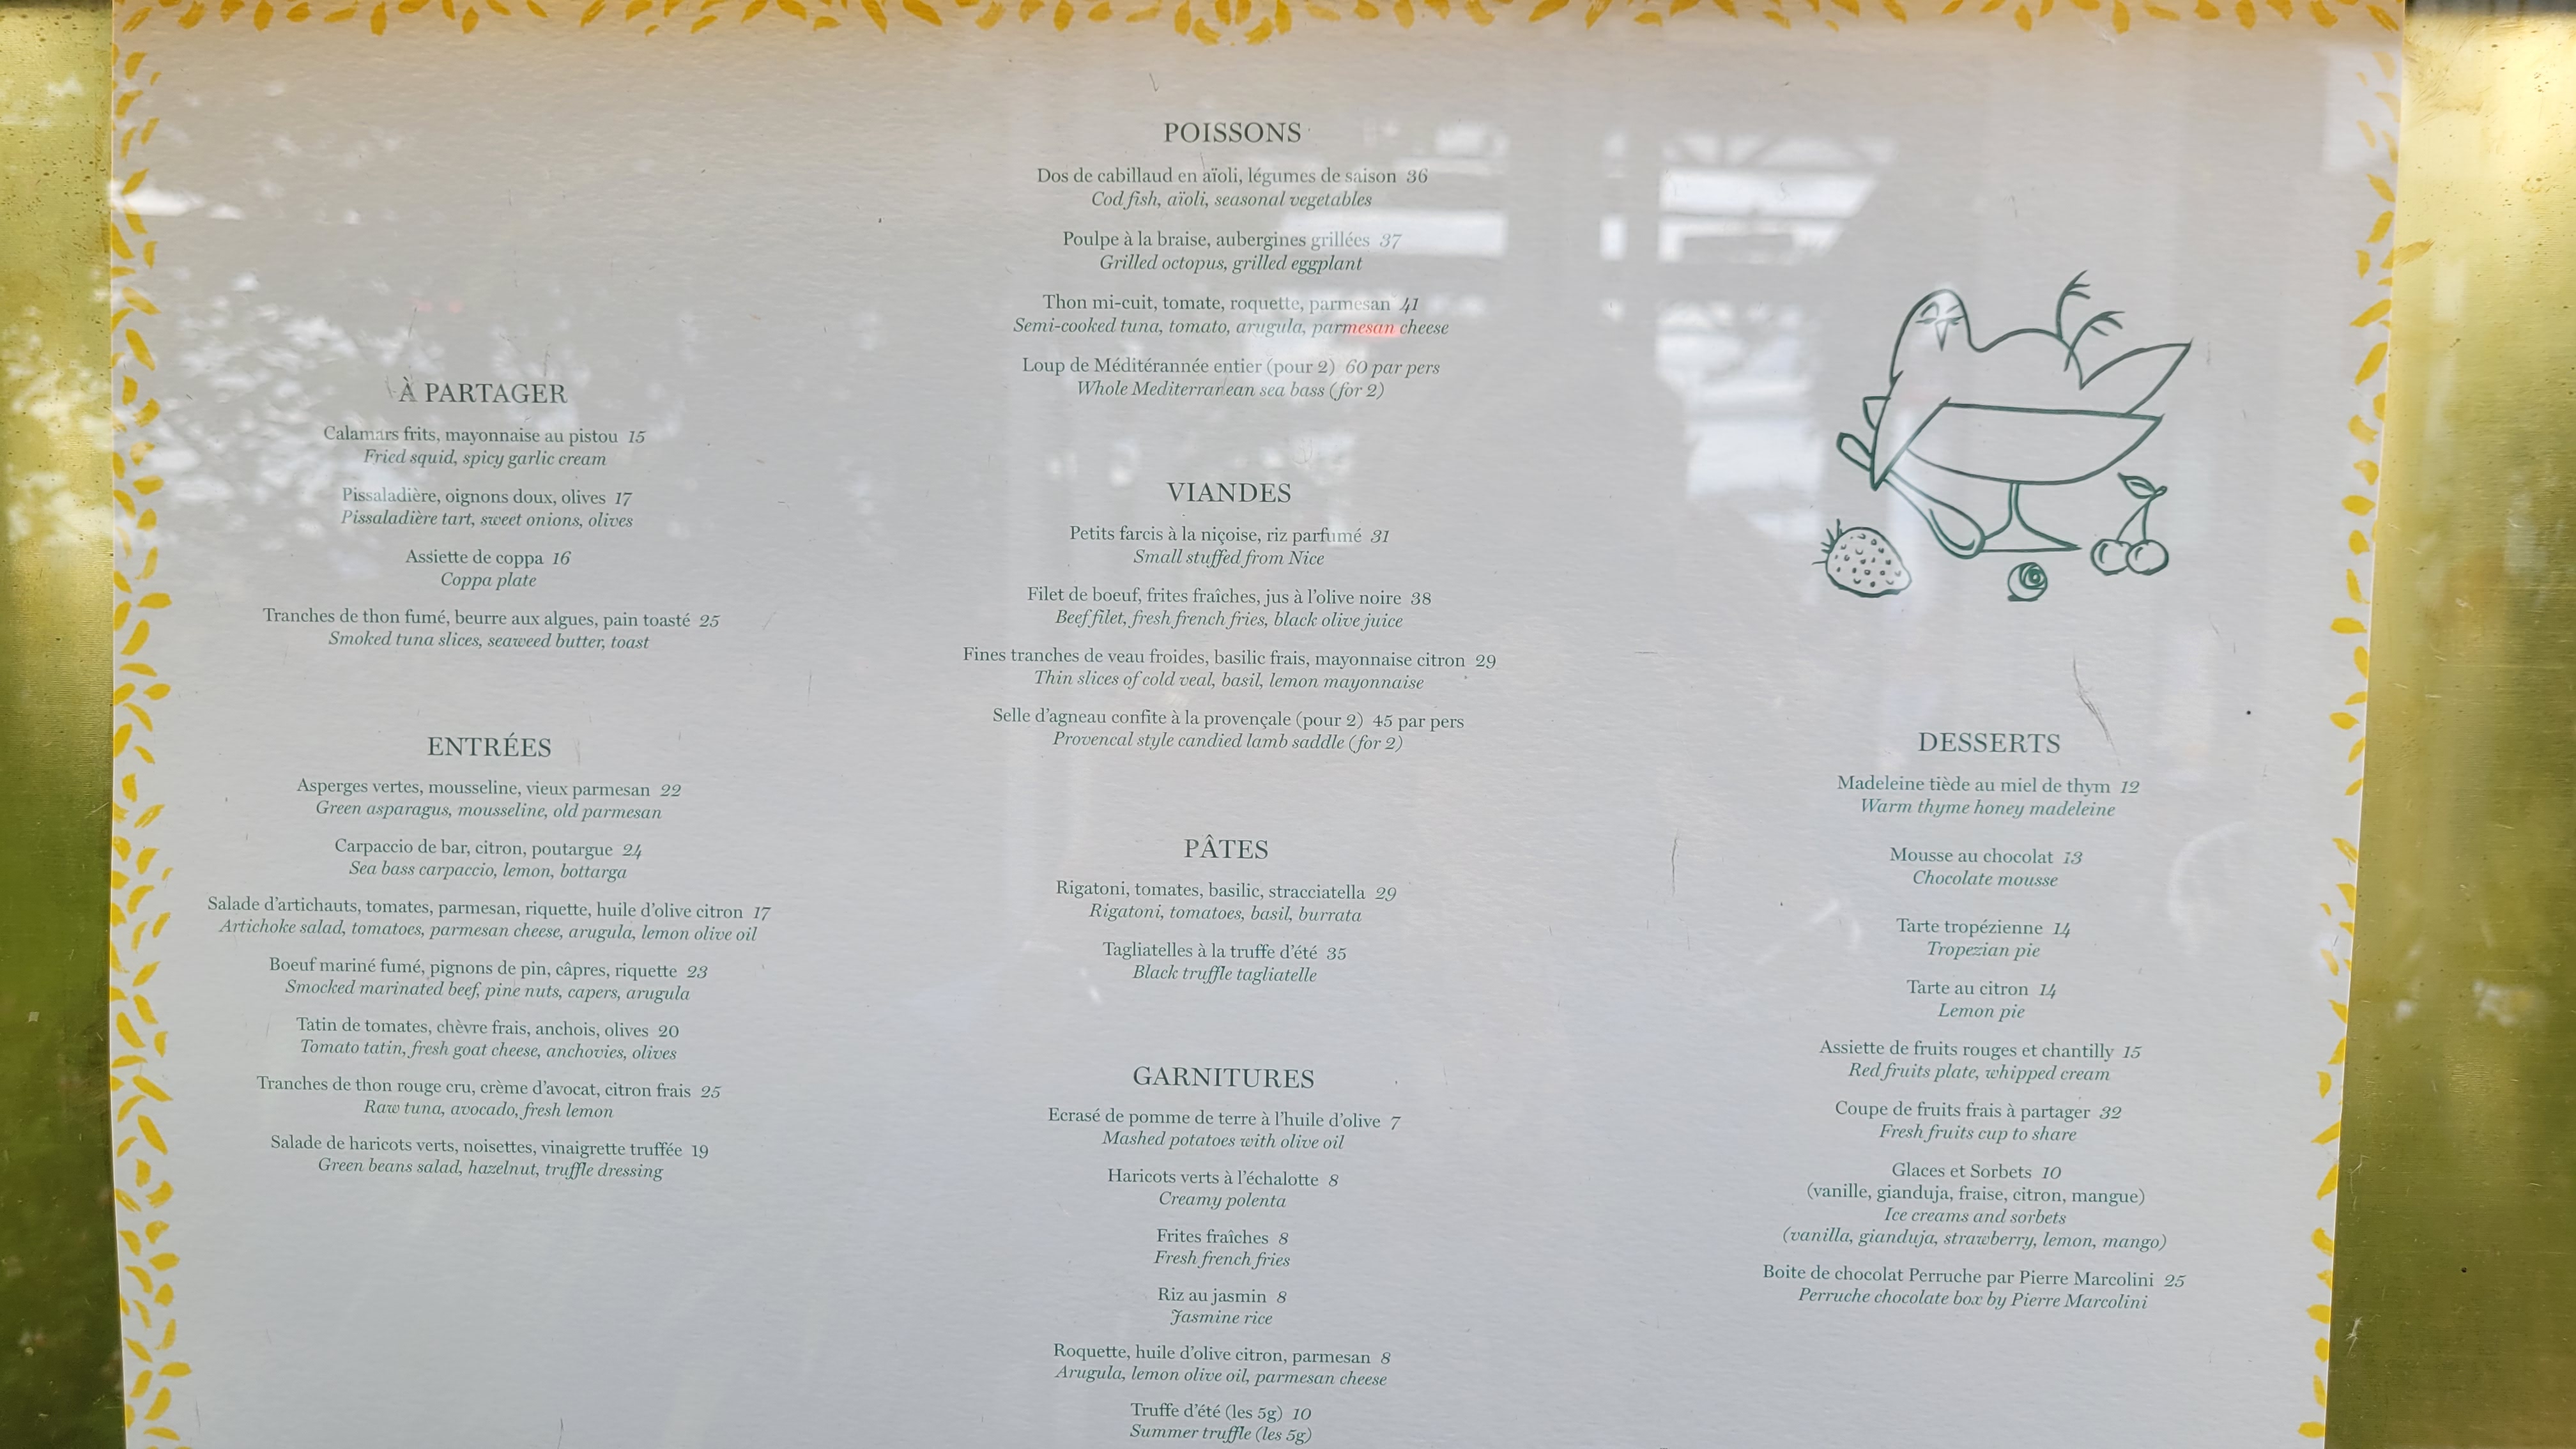 À PARTAGER
Calamars frits, mayonnaise au pistou 15
Fried squid, spicy garlic cream
Pissaladière, oignons doux, olives 17
Pissaladière tart, sweet onions, olives
Assiette de coppa 16
Coppa plate
Tranches de thon fumé, beurre aux algues, pain toasté 25
Smoked tuna slices, seaweed butter, toast
ENTRÉES
Asperges vertes, mousseline, vieux parmesan 22
Green asparagus, mousseline, old parmesan
Carpaccio de bar, citron, poutargue 24
Sea bass carpaccio, lemon, bottarga
Salade d'artichauts, tomates, parmesan, riquette, huile d'olive citron 17
Artichoke salad, tomatoes, parmesan cheese, arugula, lemon olive oil
Boeuf mariné fumé, pignons de pin, câpres, riquette 23
Smocked marinated beef, pine nuts, capers, arugula
Tatin de tomates, chèvre frais, anchois, olives 20
Tomato tatin, fresh goat cheese, anchovies, olives
Tranches de thon rouge cru, crème d'avocat, citron frais 25
Raw tuna, avocado, fresh lemon
Salade de haricots verts, noisettes, vinaigrette truffée 19
Green beans salad, hazelnut, truffle dressing
POISSONS
Dos de cabillaud en aïoli, légumes de saison 36
Cod fish, aïoli, seasonal vegetables
Poulpe à la braise, aubergines grillées 37
Grilled octopus, grilled eggplant
Thon mi-cuit, tomate, roquette, parmesan 41
Semi-cooked tuna, tomato, arugula, parmesan cheese
Loup de Méditérannée entier (pour 2) 60 par pers
Whole Mediterranean sea bass (for 2)
VIANDES
Petits farcis à la niçoise, riz parfumé 31
Small stuffed from Nice
Filet de boeuf, frites fraîches, jus à l'olive noire 38
Beef filet, fresh french fries, black olive juice
Fines tranches de veau froides, basilic frais, mayonnaise citron 29
Thin slices of cold veal, basil, lemon mayonnaise
Selle d'agneau confite à la provençale (pour 2) 45 par pers
Provencal style candied lamb saddle (for 2)
PÂTES
Rigatoni, tomates, basilic, stracciatella 29
Rigatoni, tomatoes, basil, burrata
Tagliatelles à la truffe d'été 35
Black truffle tagliatelle
GARNITURES
Ecrasé de pomme de terre à l'huile d'olive 7
Mashed potatoes with olive oil
Haricots verts à l'échalotte 8
Creamy polenta
Frites fraîches 8
Fresh french fries
Riz au jasmin 8
Jasmine rice
Roquette, huile d'olive citron, parmesan 8
Arugula, lemon olive oil, parmesan cheese
Truffe d'été (les 5g) 10
Summer truffle (les 5g)
DESSERTS
Madeleine tiède au miel de thym 12
Warm thyme honey madeleine
Mousse au chocolat 13
Chocolate mousse
Tarte tropézienne 14
Tropezian pie
Tarte au citron 14
Lemon pie
Assiette de fruits rouges et chantilly 15
Red fruits plate, whipped cream
Coupe de fruits frais à partager 32
Fresh fruits cup to share
Glaces et Sorbets 10
(vanille, gianduja, fraise, citron, mangue)
Ice creams and sorbets
(vanilla, gianduja, strawberry, lemon, mango)
Boite de chocolat Perruche par Pierre Marcolini 25
Perruche chocolate box by Pierre Marcolini